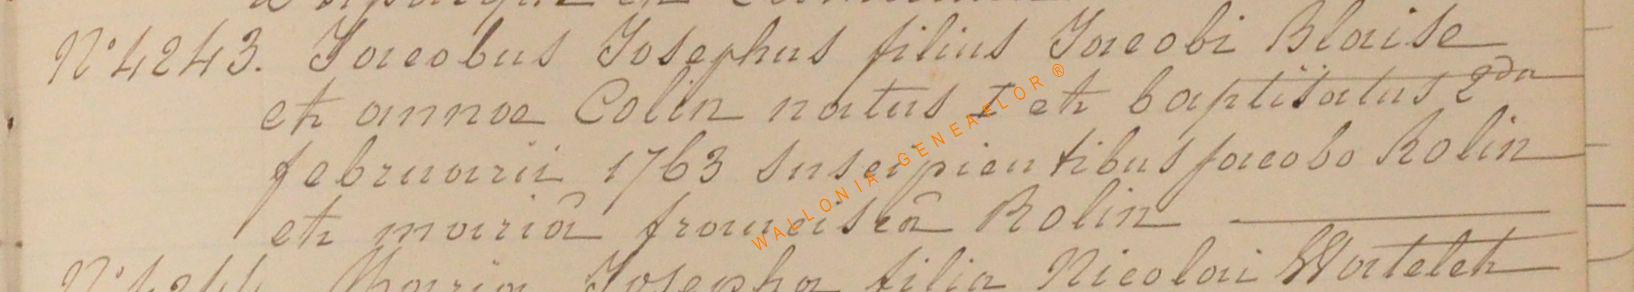 N° 4243. Jacobus Josephus filius Jacobi Blaise
et annae Colin natus I et baptisatus 2da
februarii 1763 suscipientibus jacobo Rolin
et mariâ franciscâ Rolin
N° 4244 Maria Josepha filia Nicolai Watelet
WALLONIA GENEAFLOR ®